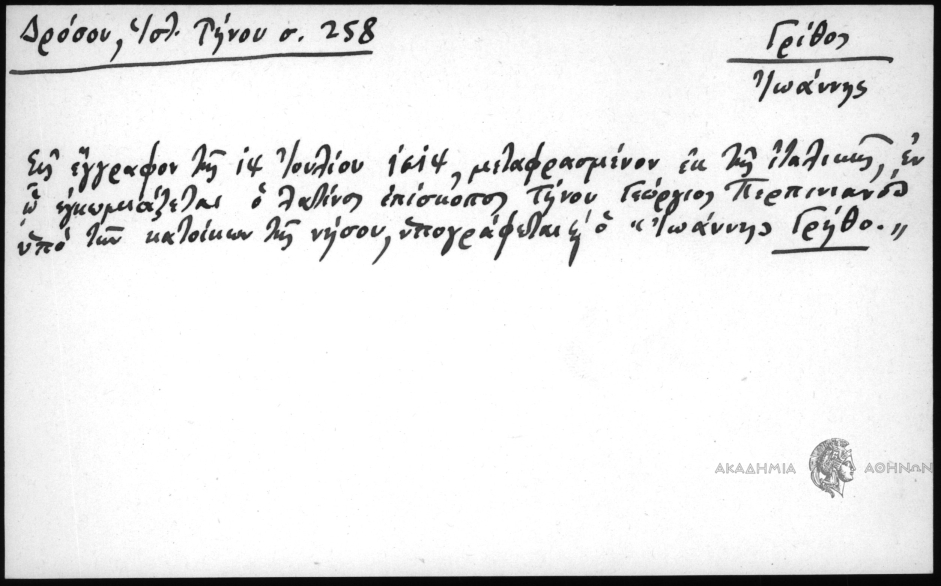 Δρόσου, Ἱστ. Τήνου σ. 258
Γρίθος
Ἰωάννης
Εἰς ἔγγραφον τῆς 14 Ἰουλίου 1614, μεταφρασμένον ἐκ τῆς Ἰταλικῆς, ἐν
ᾧ ἐγκωμιάζεται ὁ λατῖνος ἐπίσκοπος Τήνου Γεώργιος Περπινιανὸς
ὑπὸ τῶν κατοίκων τῆς νήσου, ὑπογράφεται καὶ ὁ "Ἰωάννης Γρήθο."
ΑΚΑΔΗΜΙΑ ΑΘΗΝΩΝ